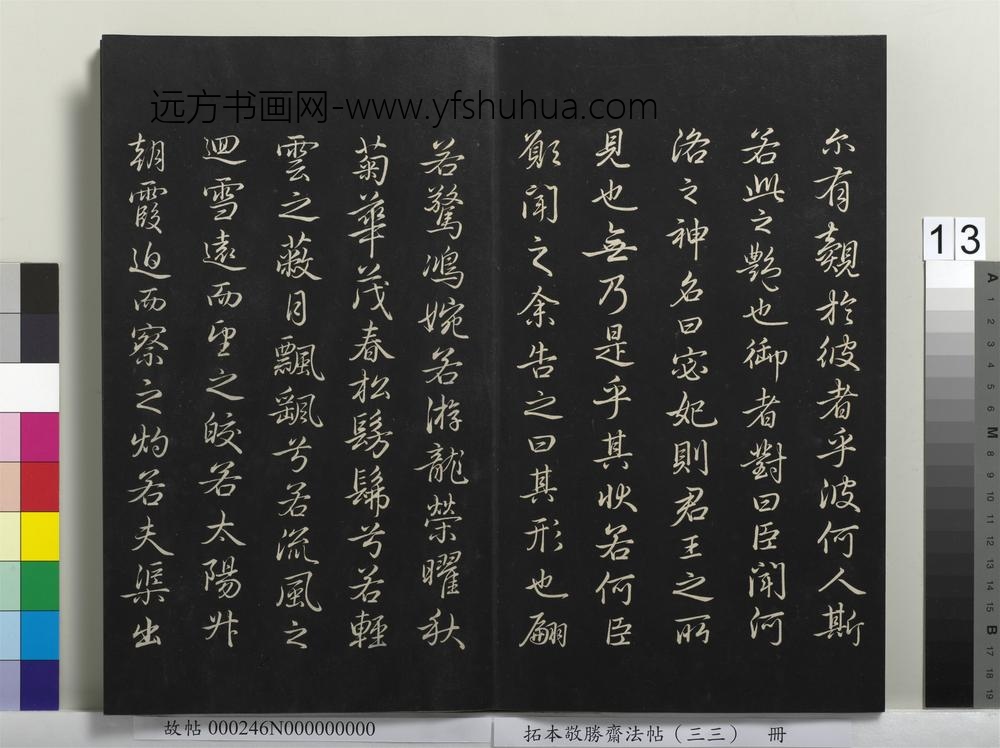 远方书画网-www.yfshuhua.com
尒有覿於彼者乎彼何人斯
若此之艷也御者對曰臣聞河
洛之神名曰宓妃則君王之所
見也無乃是乎其狀若何臣
願聞之余告之曰其形也翩
若驚鴻婉若游龍榮曜秋
菊華茂春松髣髴兮若輕
雲之蔽月飄颻兮若流風之
迴雪遠而望之皎若太陽升
朝霞迫而察之灼若夫渠出
13
A 1 2 3 4 5 6 M 8 9 10 11 12 13 14 15 B 17 18 19
故帖 000246N000000000
拓本敬勝齋法帖（三三） 冊